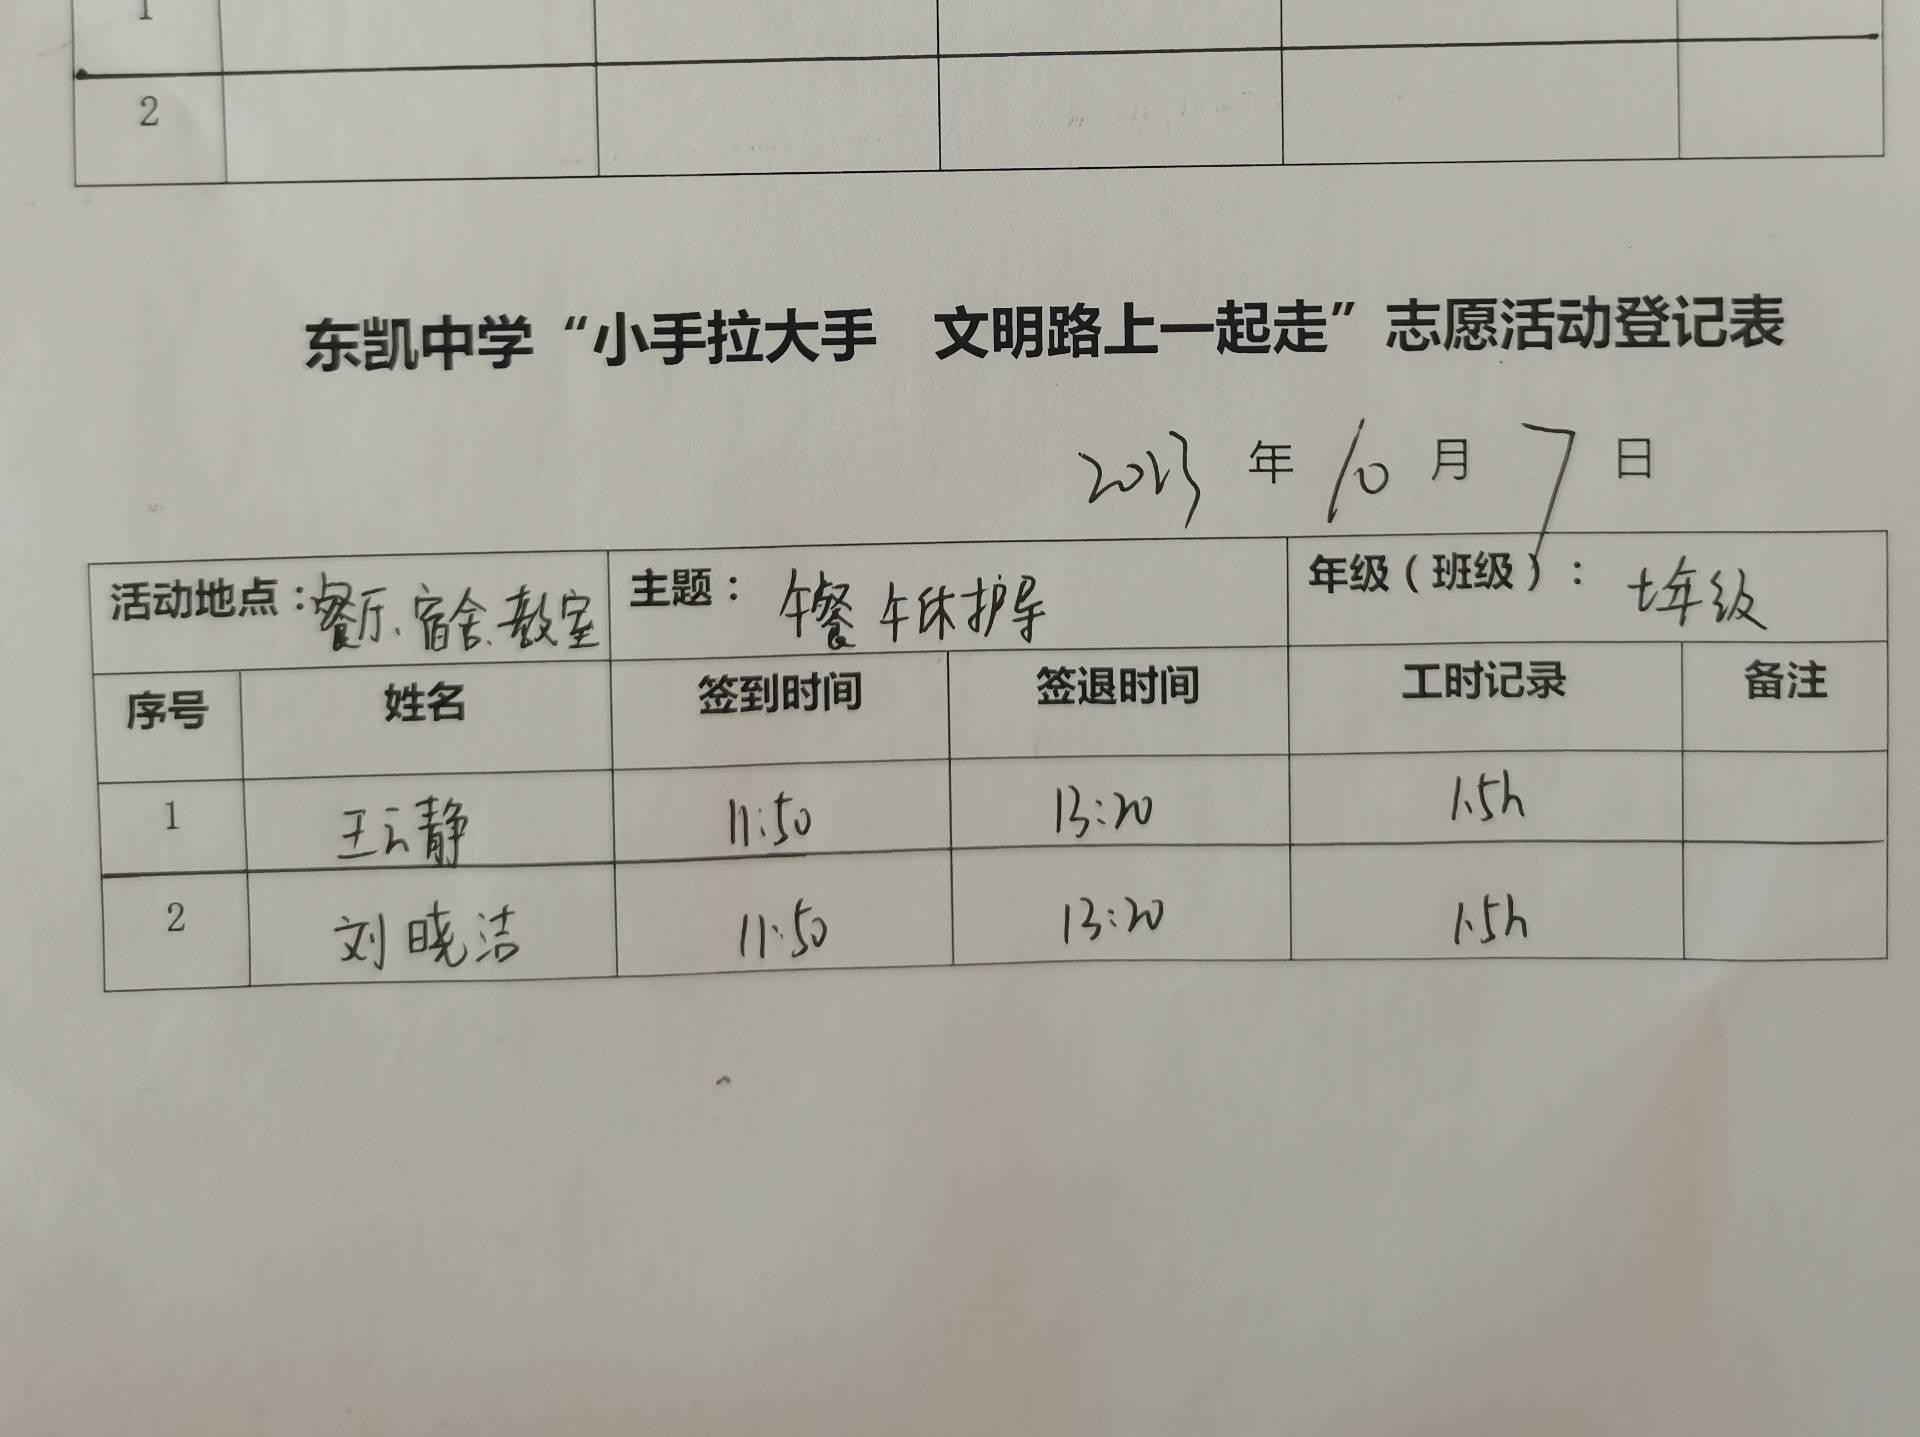 1
2
东凯中学“小手拉大手 文明路上一起走”志愿活动登记表
2023 年 10 月 7 日
活动地点：餐厅、宿舍、教室 主题： 午餐 午休护导 年级（班级）： 七年级
序号 姓名 签到时间 签退时间 工时记录 备注
1 王云静 11:50 13:20 1.5h
2 刘晓洁 11:50 13:20 1.5h